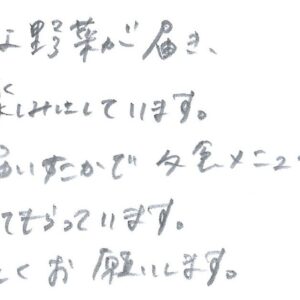 野菜が届き、
しみにしています。
届いたかで 夕食メニュ
てもらっています。
くお願いします。